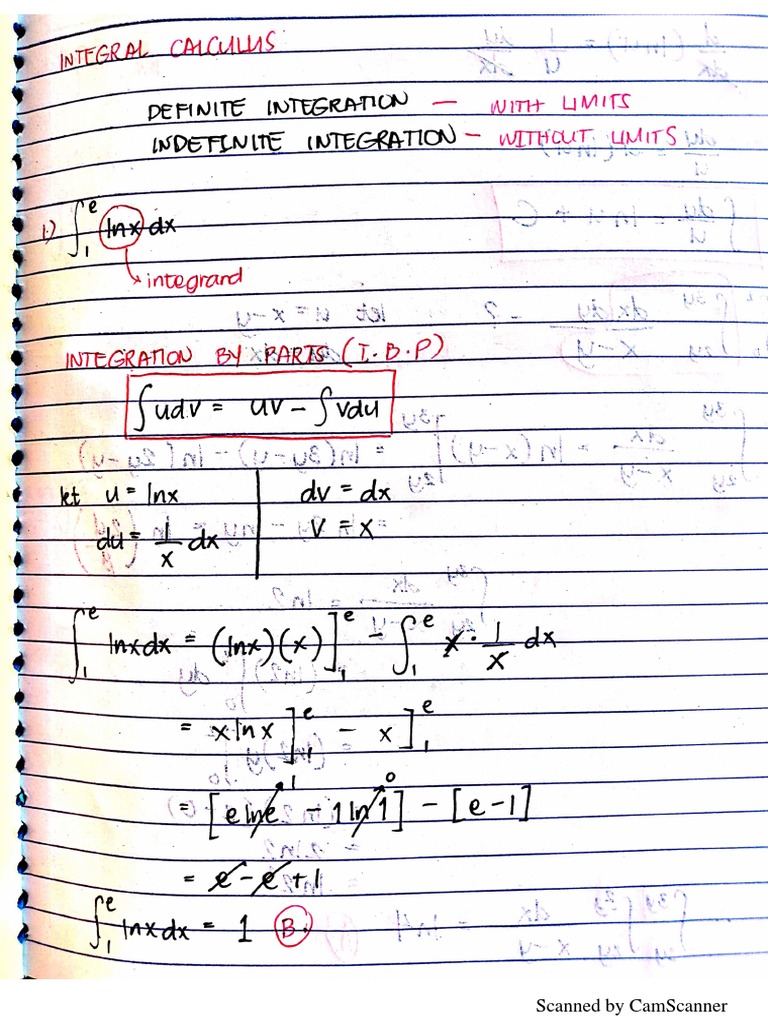 INTEGRAL CALCULUS
DEFINITE INTEGRATION — WITH LIMITS
INDEFINITE INTEGRATION – WITHOUT LIMITS
1.) ∫₁ᵉ lnx dx
integrand
INTEGRATION BY PARTS (I.B.P)
∫udv = uv – ∫vdu
let u = lnx dv = dx
du = 1/x dx v = x
∫₁ᵉ lnxdx = (lnx)(x)]₁ᵉ – ∫₁ᵉ x · 1/x dx
= xlnx]₁ᵉ – x]₁ᵉ
= [e lne 1 – 1 ln1 0] – [e – 1]
= e – e + 1
∫₁ᵉ lnxdx = 1 B.
Scanned by CamScanner